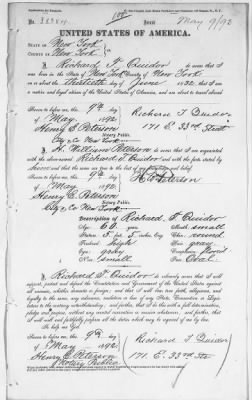 May 9/92
UNITED STATES OF AMERICA.
STATE OF New York
COUNTY OF New York
I, Richard F Quidor, do swear that I
was born in the State of New York, County of New York
on or about the Thirtieth day of June, that I am
a native and loyal citizen of the United States of America, and am about to travel abroad
Sworn to before me, this 9th day
of May, 1892.
Henry E Peterson
Notary Public
City & Co New York
Richard F Quidor
171 E. 33rd Street
I, H. William Peterson, do swear that I am acquainted
with the above-named Richard F Quidor and with the facts stated by
him, and that the same are true to the best of my knowledge and belief
Sworn to before me, this 9th day
of May, 1892.
Henry E Peterson
Notary Public
City & Co New York
Peterson
Description of Richard F Quidor
Age: 60 years
Mouth: small
Stature: 5 feet 5 inches, Eng.
Chin: round
Forehead: high
Hair: gray
Eyes: gray
Complexion:
Nose: small
Face: Oval
I, Richard F Quidor, do solemnly swear that I will support,
protect, and defend the Constitution and Government of the United States against
all enemies, whether domestic or foreign; and that I will bear true faith, allegiance, and
loyalty to the same, any ordinance, resolution or law of any State, Convention or Legis-
lature to the contrary notwithstanding; and further, that I do this with a full determination,
pledge and purpose, without any mental reservation or evasion whatsoever; and further, that
I will well and faithfully perform all the duties which may be required of me by law.
So help me God.
Sworn to before me, this 9th day
of May, 1892.
Henry E Peterson
Notary Public
Richard F Quidor
171 E. 33rd St